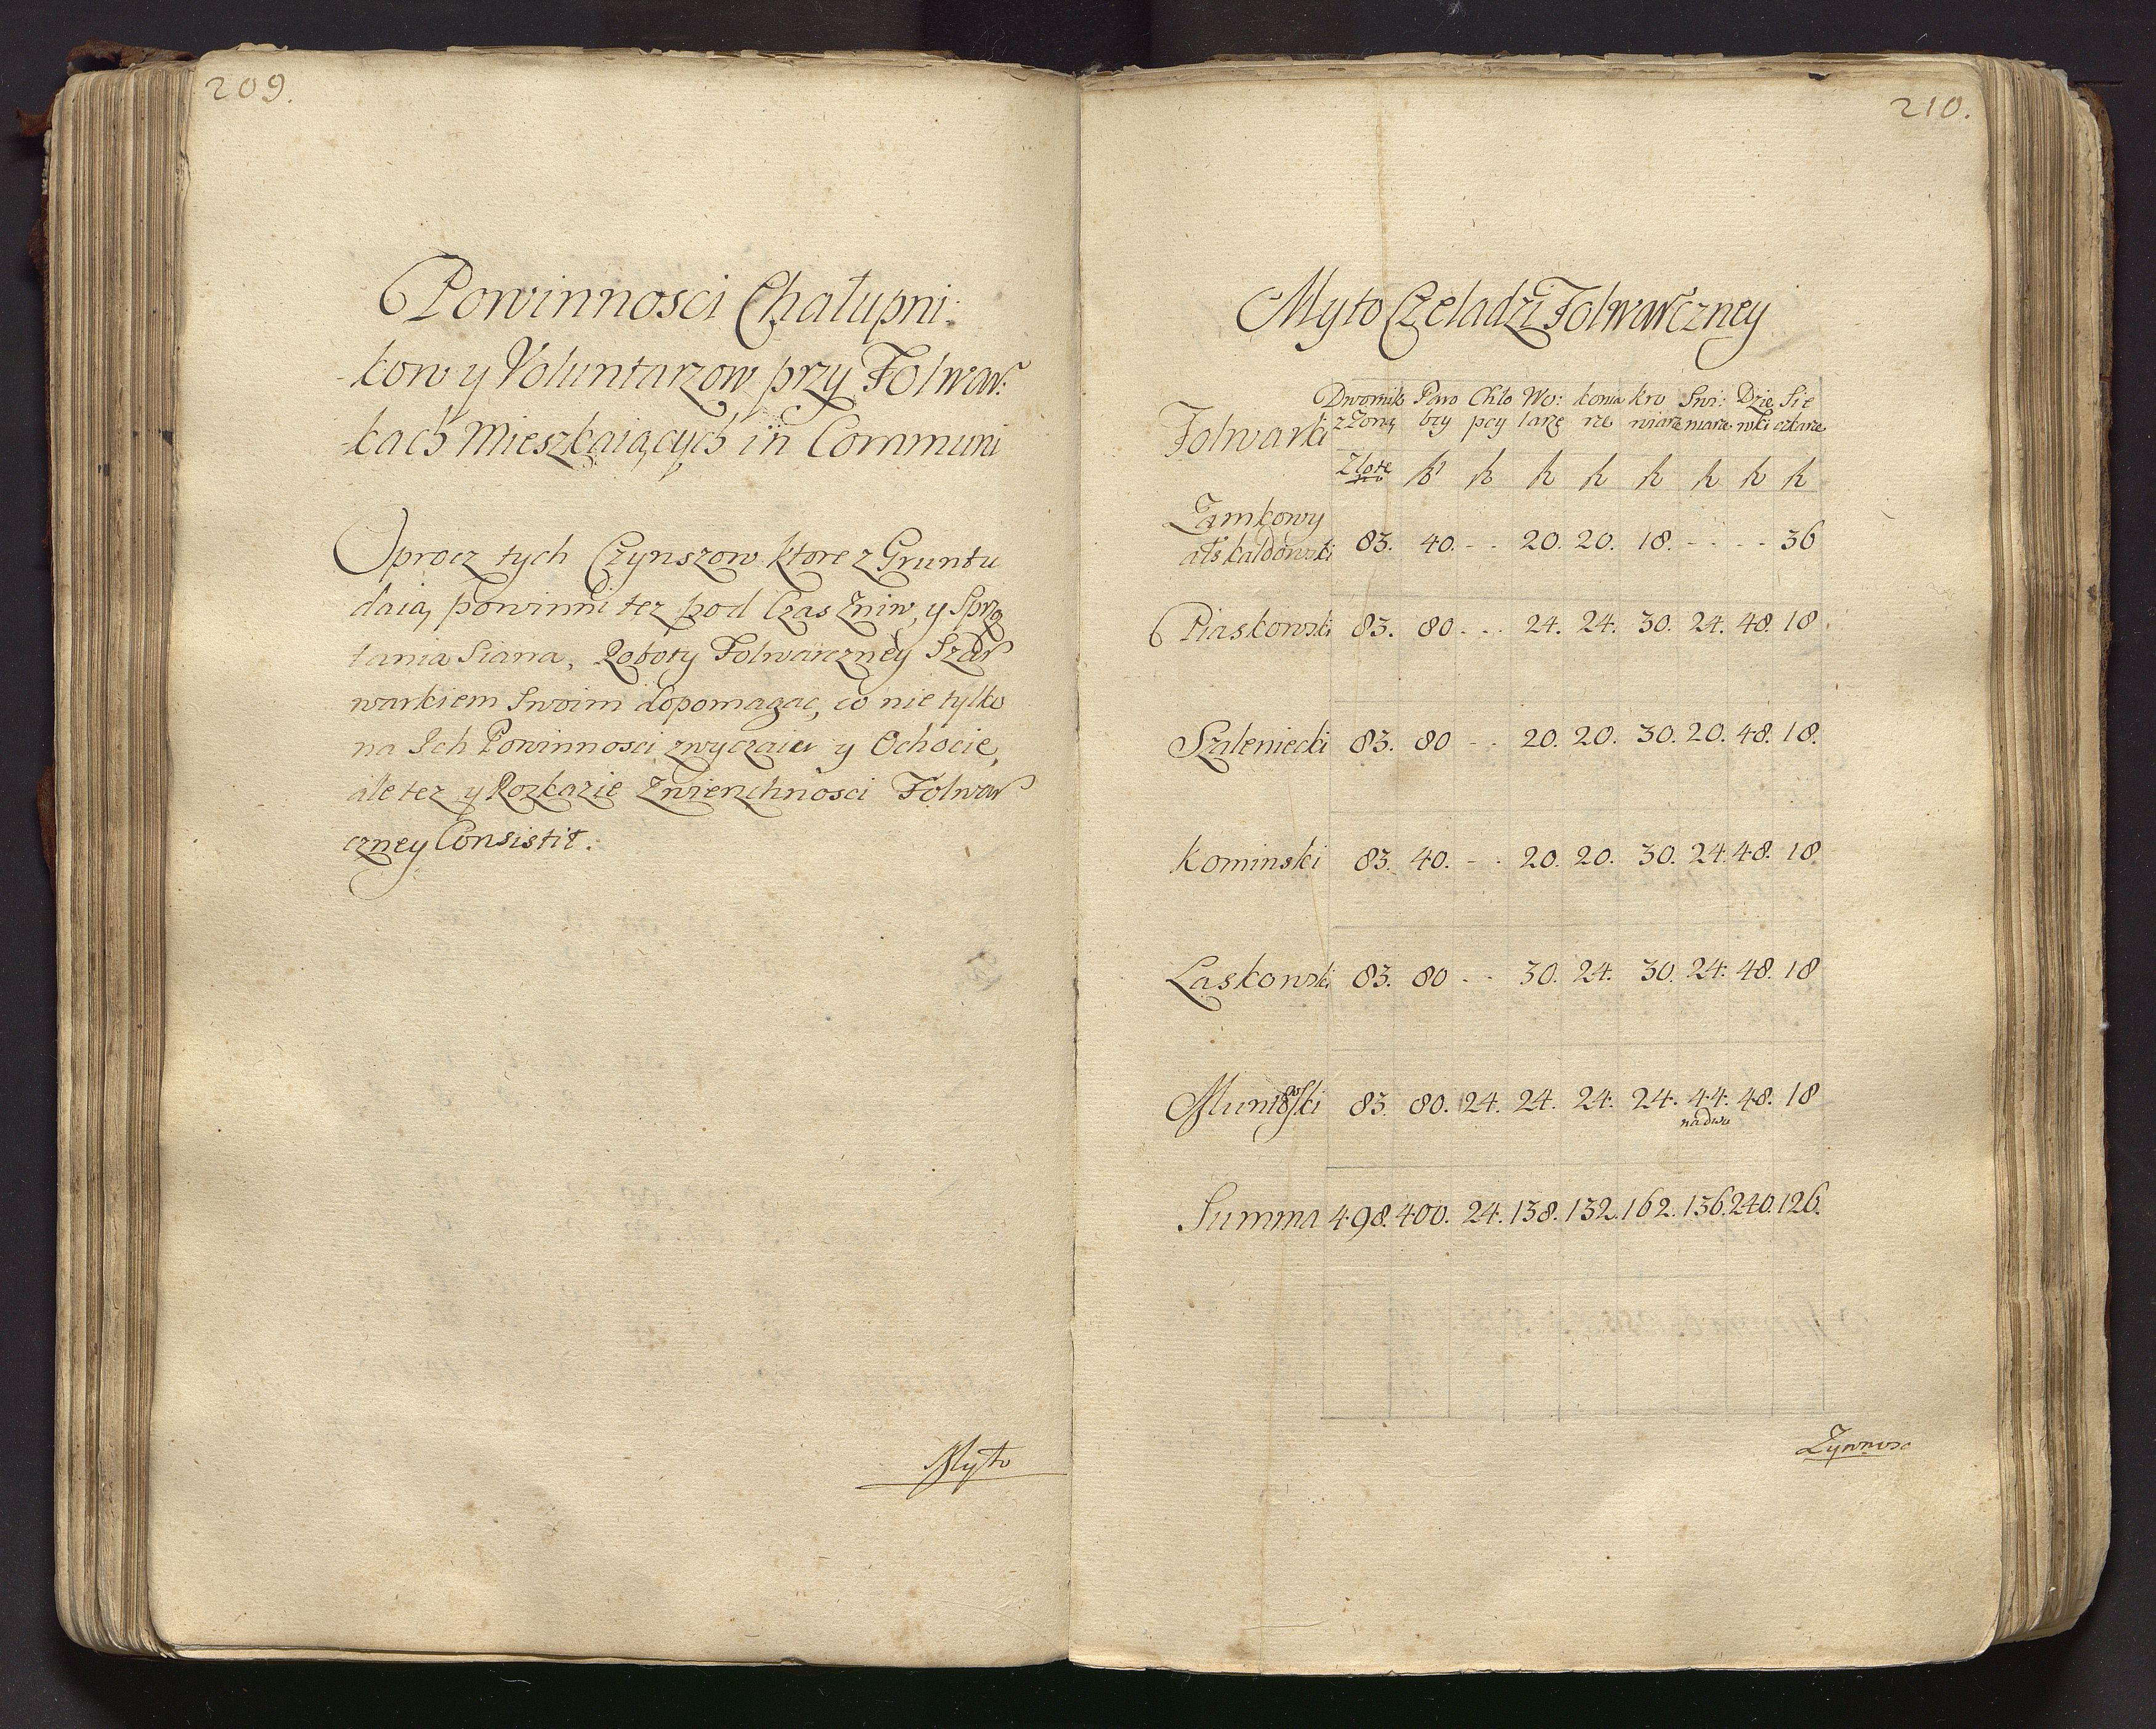 209.
Powinnosci Chałupni:
-kow y Voluntarzow przy Folwar:
-kach Mieszkaiących in Communi
Oprocz tych Czynszow ktore z Gruntu
daią, powinni tez pod Czas Zniw, y Sprzą
tania Siana, Roboty Folwarczney Szar
warkiem Swoim dopomagac, co nie tylko
na Ich Powinnosci zwyczaiu y Ochocie,
ale tez y Rozkazie Zwierzchnosci Folwar
czney Consistit.
Myto
210.
Myto Czeladzi Folwarczney
Folwarki Dwornik z Zoną Paro bcy Chło pcy Wo: larze konia rze kro wiarze Swi: niarze Dzie wki Sie czkarze
Złote
Zamkowy
als kałdowski 83. 40. - . 20. 20. 18. - . - . - 36
Piaskowski 83. 80. - . 24. 24. 30. 24. 48. 18.
Szleniecki 83. 80 - . 20. 20. 30. 20. 48. 18.
Kominski 83. 40. - . 20. 20. 30. 24. 48. 18
Laskowski 83. 80 - . 30. 24. 30. 24. 48. 18
83. 80. 24. 24. 24. 24. 44. 48. 18
na dwu
Summa 498. 400. 24. 138. 132. 162. 136. 240. 126.
Zywnosc